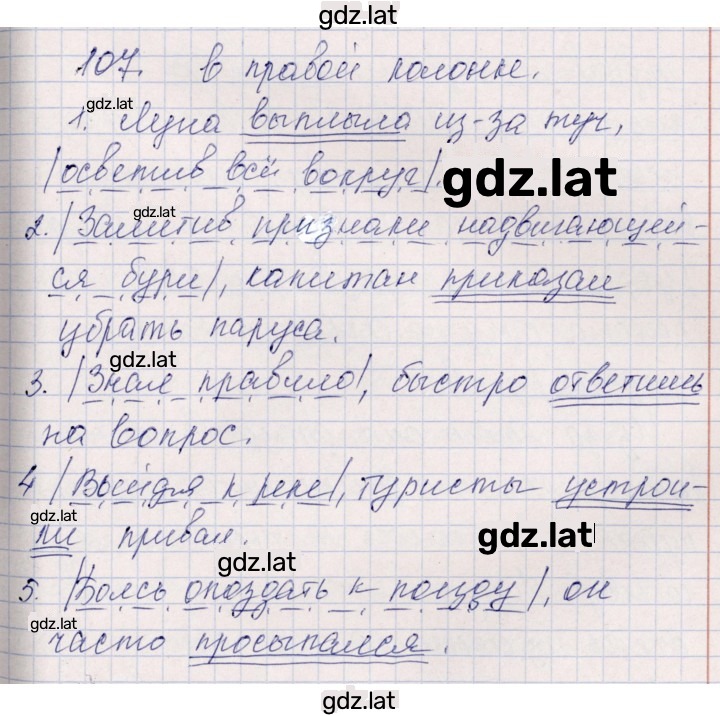 gdz.lat
107. В правой колонне.
gdz.lat
1. Луна выплыла из-за туч,
|осветив всё вокруг|.
gdz.lat
gdz.lat
2. |Заметив признаки надвигающей-
ся бури|, капитан приказал
убрать паруса.
gdz.lat
3. |Зная правило|, быстро ответишь
на вопрос.
4 |Выйдя к реке|, туристы устрои-
gdz.lat
ли привал.
gdz.lat
gdz.lat
5. |Боясь опоздать к поезду|, он
gdz.lat
часто просыпался.
gdz.lat